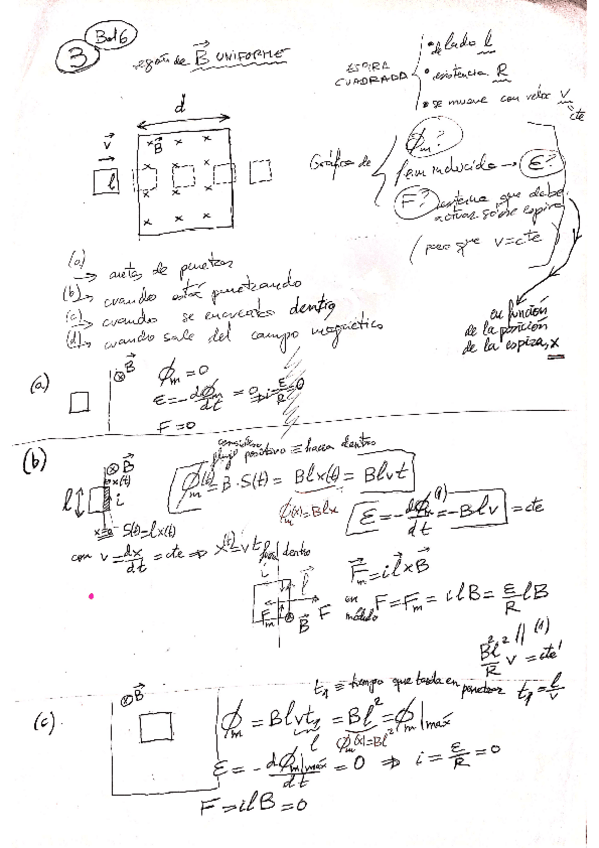 3
Bol 6
región de B⃗ UNIFORME
ESPIRA CUADRADA
• de lado l
• resistencia R
• se mueve con veloc v = cte
d
v⃗
l
B⃗
Gráfico de
Φm?
fem inducida → ε?
F? externa que debe actuar sobre espira
(para que v = cte)
en función
de la posición
de la espira, x
(a) → antes de penetrar
(b) → cuando está penetrando
(c) → cuando se encuentra dentro
(d) → cuando sale del campo magnético
(a)
⊗B⃗
Φm = 0
ε = -dΦm/dt = 0 ⇒ i = ε/R = 0
F = 0
(b)
flujo positivo ≡ hacia dentro
⊗B⃗
x(t)
l
i
x=0
S(t) = l x(t)
Φm(t) = B · S(t) = Blx(t) = Blvt
Φm(x) = Blx
ε = -dΦm/dt = -Blv = cte
(1)
con v = dx/dt = cte ⇒ x(t) = vt
dentro
i
l⃗
Fm
B⃗
F
F⃗m = i l⃗ × B⃗
en módulo
F = Fm = i l B = ε/R lB
|| (1)
B²l²/R v = cte
t1 ≡ tiempo que tarda en penetrar t1 = l/v
(c)
⊗B⃗
Φm = Blvt1 = Bl² = Φm|máx
l
Φm(x) = Bl²
ε = -dΦm|máx/dt = 0 ⇒ i = ε/R = 0
F = ilB = 0